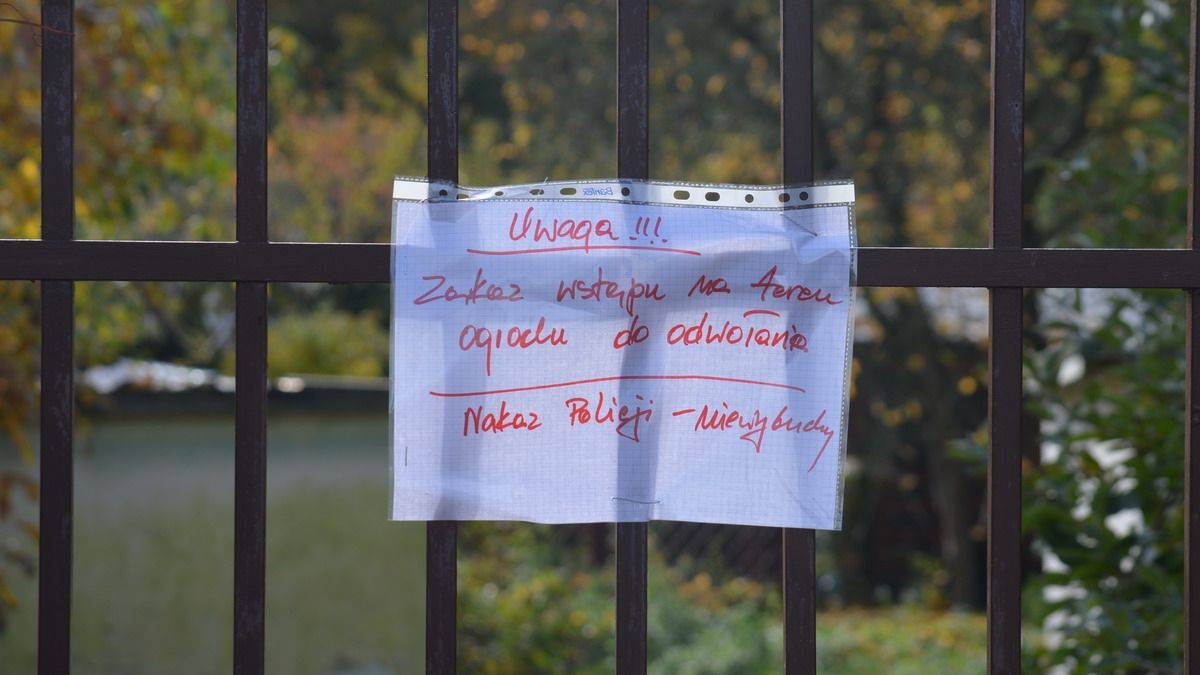 Bantex
Uwaga !!!
Zakaz wstępu na teren
ogrodu do odwołania
Nakaz Policji - niewybuchy